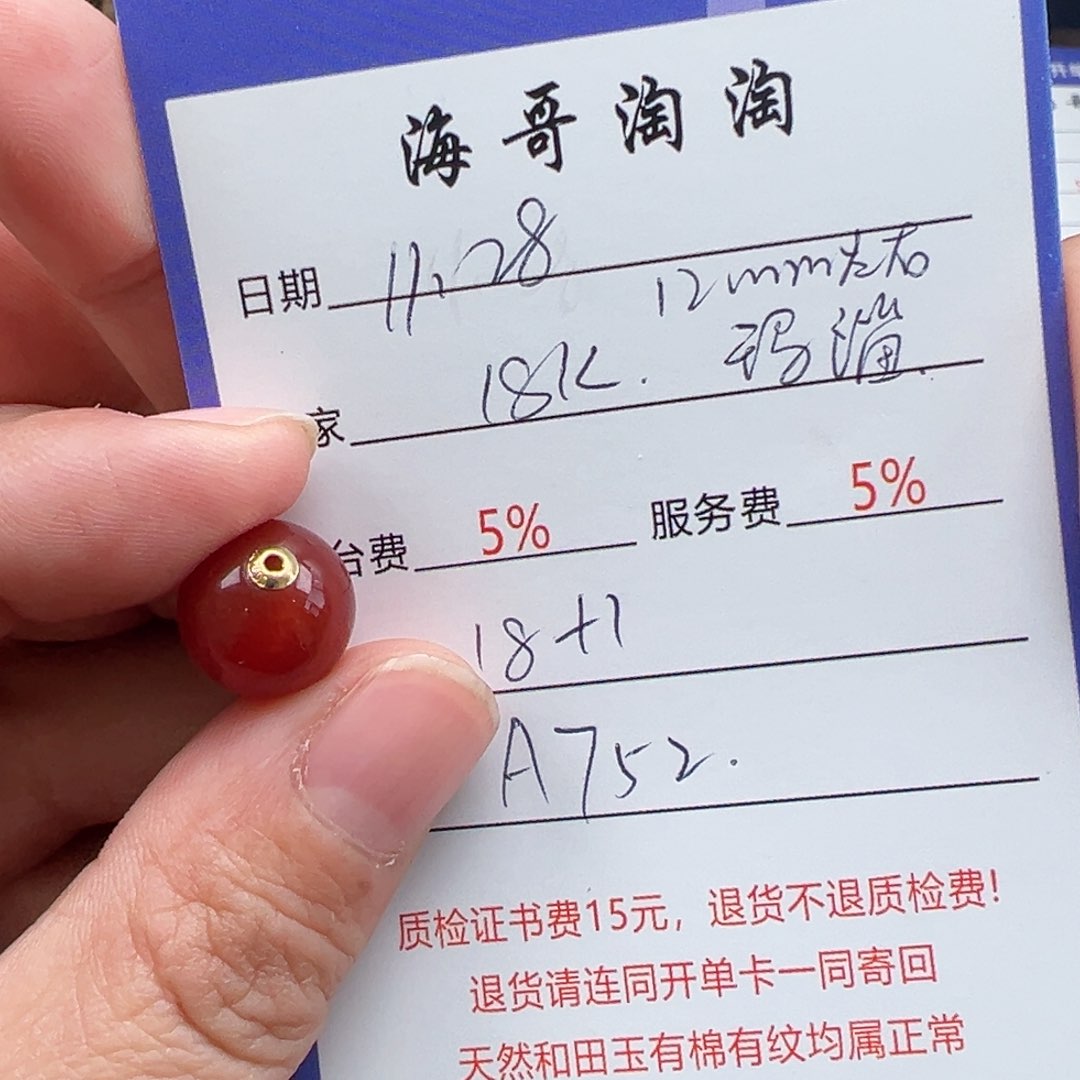 海哥淘淘
日期 11.28
12mm左右
家 18K. 玛瑙
台费 5% 服务费 5%
18+1
A752.
质检证书费15元，退货不退质检费！
退货请连同开单卡一同寄回
天然和田玉有棉有纹均属正常